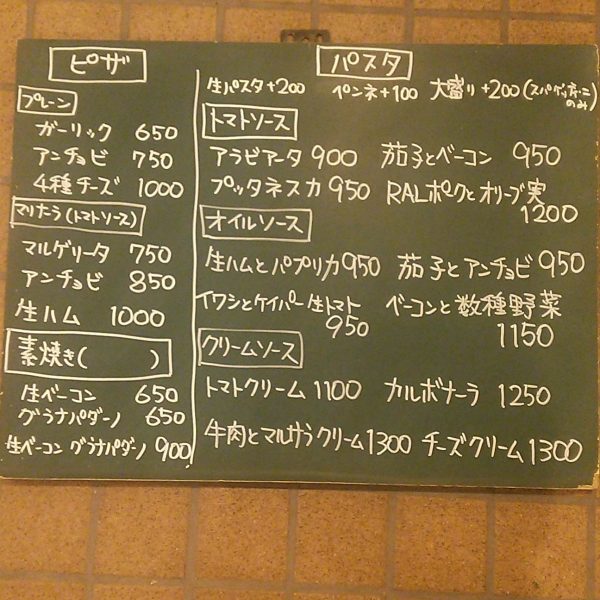 ピザ
プレーン
ガーリック 650
アンチョビ 750
4種チーズ 1000
マリナーラ(トマトソース)
マルゲリータ 750
アンチョビ 850
生ハム 1000
素焼き( )
生ベーコン 650
グラナパダーノ 650
生ベーコン グラナパダーノ 900
パスタ
生パスタ+200 ペンネ+100 大盛り+200(スパゲッティーニのみ)
トマトソース
アラビアータ 900 茄子とベーコン 950
プッタネスカ 950 RALポクとオリーブ実
1200
オイルソース
生ハムとパプリカ 950 茄子とアンチョビ 950
イワシとケイパー生トマト ベーコンと数種野菜
950 1150
クリームソース
トマトクリーム 1100 カルボナーラ 1250
牛肉とマルサラクリーム 1300 チーズクリーム 1300